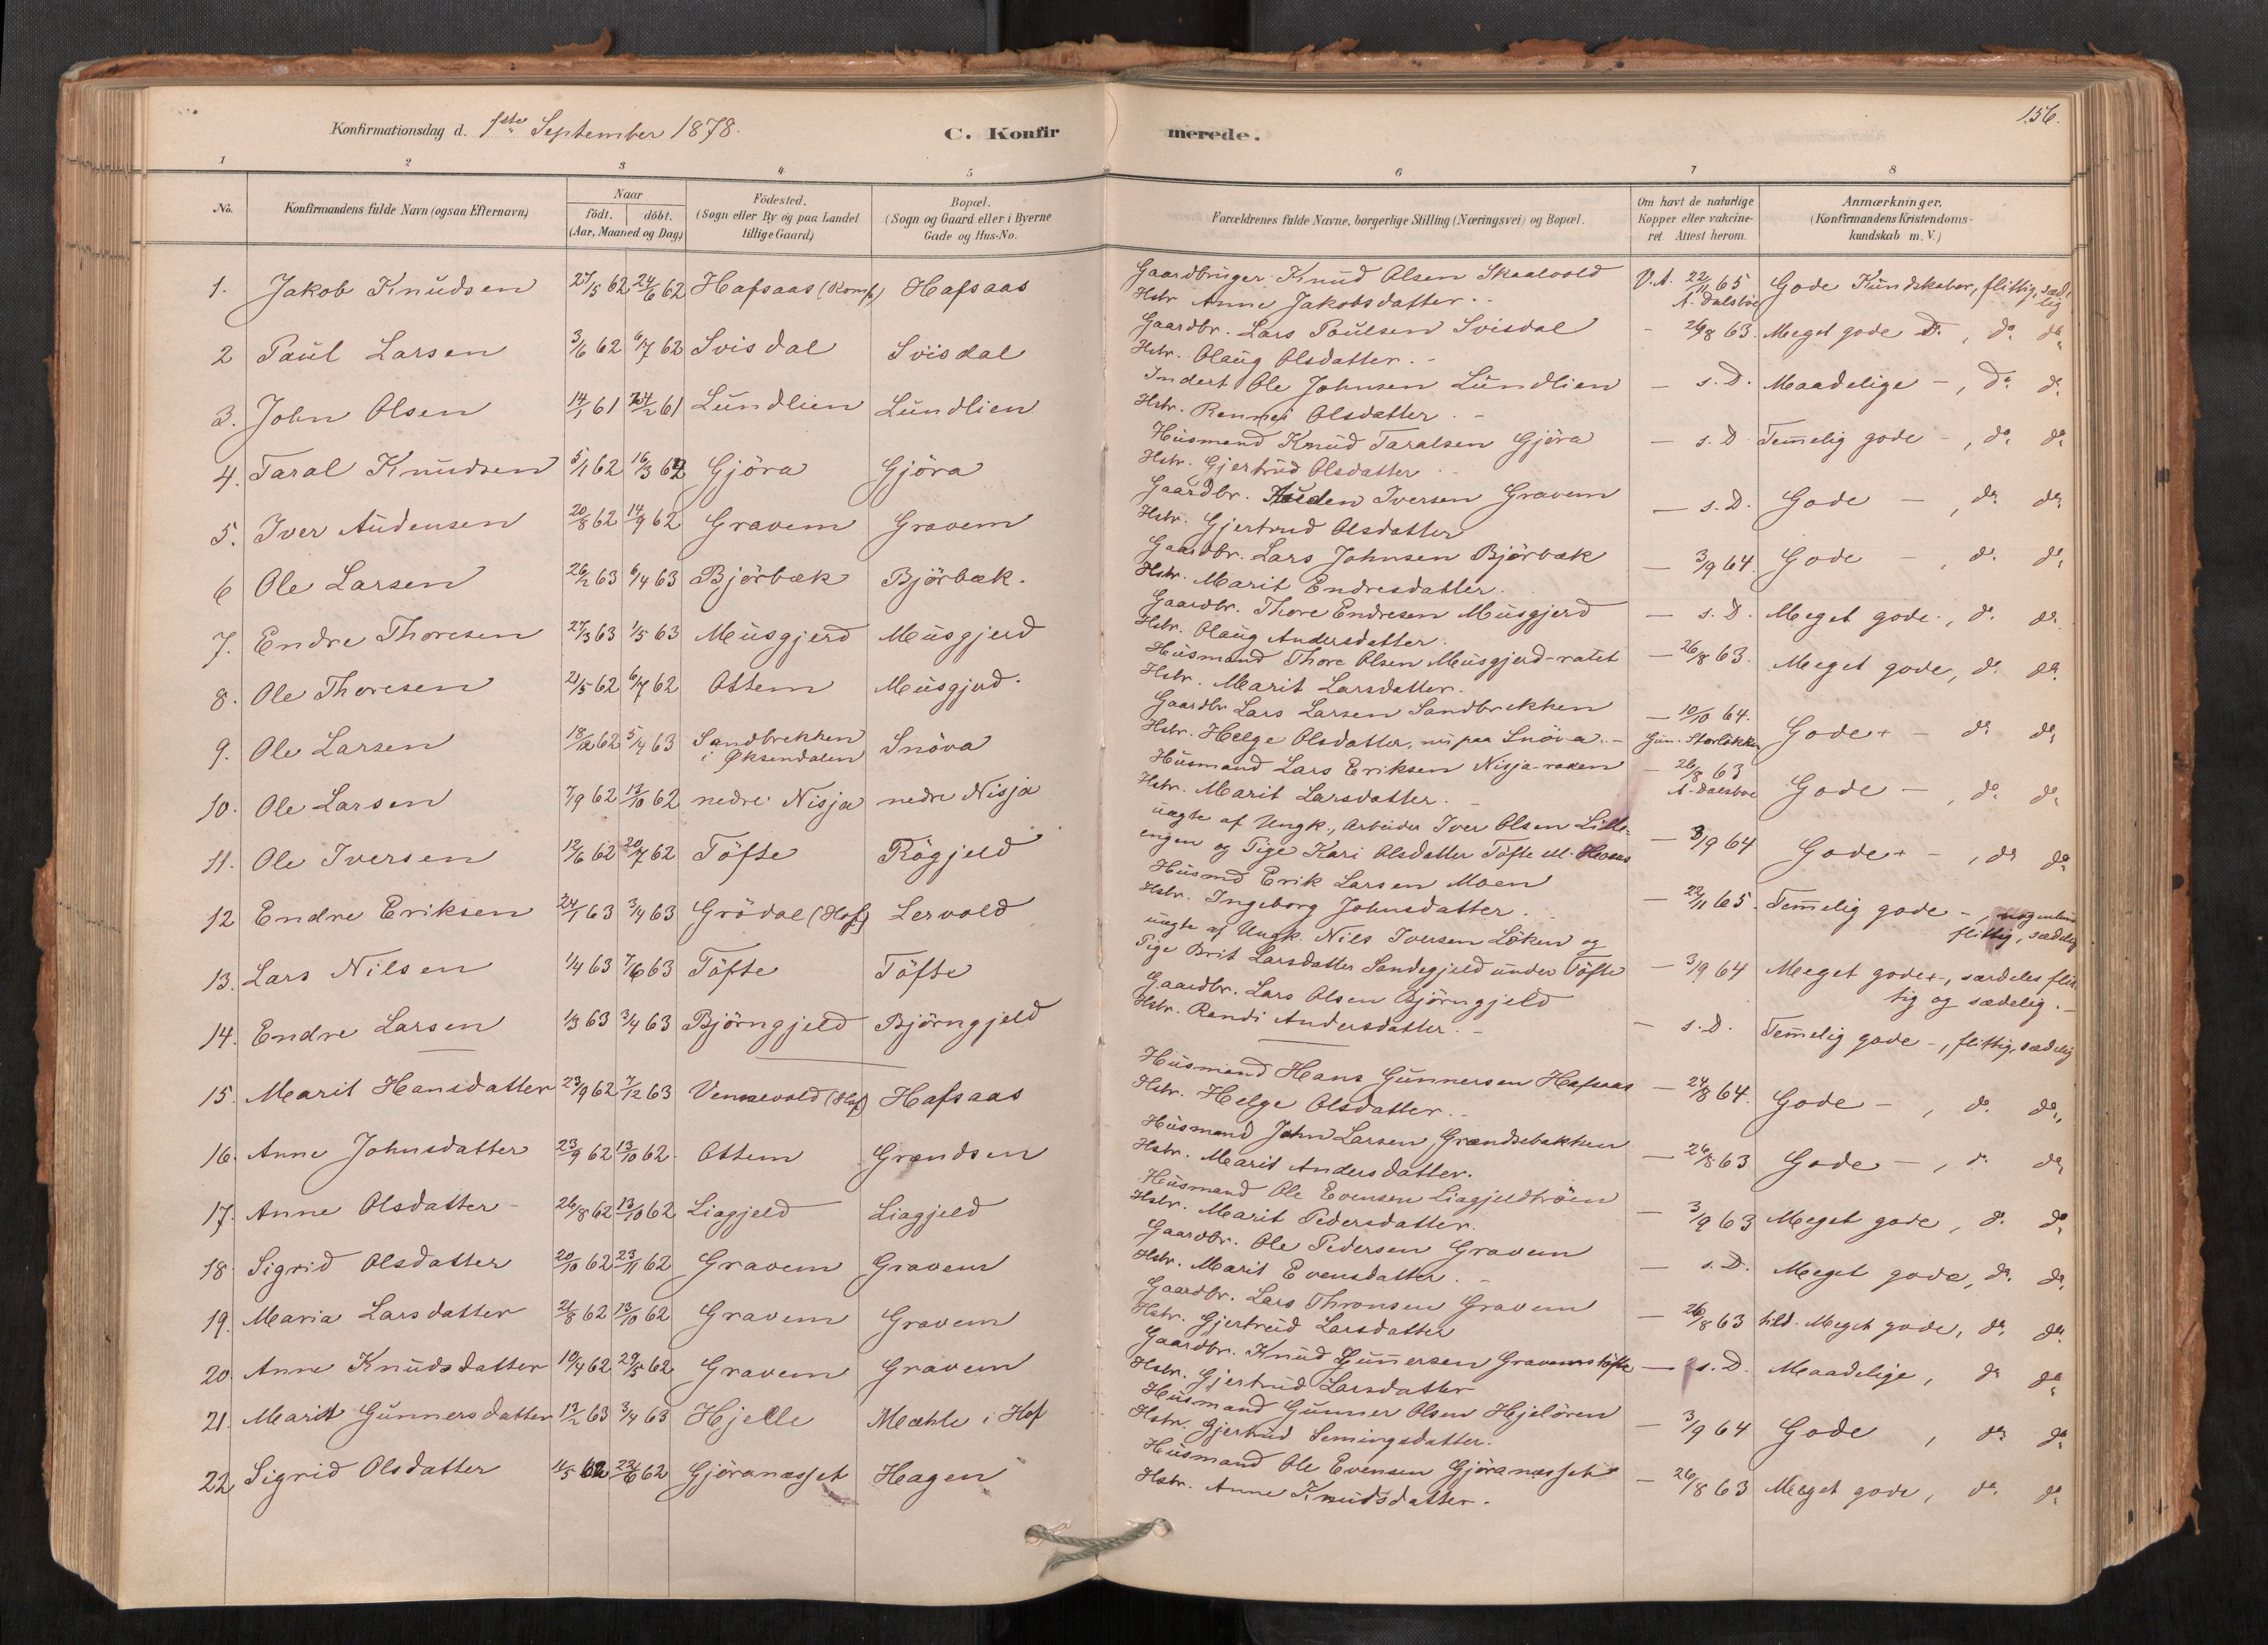 Konfirmationsdag d. 1ste September 1878.
C. Konfirmerede.
156.
1 2 3 4 5 6 7 8
No.
Konfirmandens fulde Navn (ogsaa Efternavn)
Naar
födt. döbt.
(Aar, Maaned og Dag)
Födested.
(Sogn eller By og paa Landet
tillige Gaard)
Bopæl.
(Sogn og Gaard eller i Byerne
Gade og Hus-No.
Forældrenes fulde Navne, borgerlige Stilling (Næringsvei) og Bopæl.
Om havt de naturlige
Kopper eller vakcine-
ret. Attest herom.
Anmærkninger.
(Konfirmandens Kristendoms-
kundskab m. V.)
1. Jakob Knudsen 27/5 62 24/6 62 Hafsaas Hafsaas Gaardbruger Knud Olsen Skaalvold V.A. 22/11 65 Gode Kundskaber, flittig, sæde
Hstr Anne Jakobsdatter. - A. Dalsboe lig
2 Paul Larsen 3/6 62 6/7 62 Svisdal Svisdal Gaardbr. Lars Poulsen Svisdal - 26/8 63. Meget gode D., do do
Hstr. Olaug Olsdatter. -
3. John Olsen 14/1 61 24/2 61 Lundlien Lundlien Inderst Ole Johnsen Lundlien - s.D. Maadelige -, do do
Hstr. Olsdatter. -
4. Taral Knudsen 5/1 62 16/3 62 Gjöra Gjöra Husmand Knud Taralsen Gjöra - s.D. Temelig gode -, do do
Hstr. Gjertrud Olsdatter. -
5. Iver Audensen 20/8 62 14/9 62 Gravem Gravem Gaardbr. Auden Iversen Gravem - s.D. Gode -, do do
Hstr. Gjertrud Olsdatter
6 Ole Larsen 26/2 63 6/4 63 Björbæk Björbæk. Gaardbr. Lars Johnsen Björbæk - 3/9 64. Gode -, do do
Hstr. Marit Endresdatter.
7. Endre Thoresen 27/3 63 1/5 63 Musgjerd Musgjerd Gaardbr. Thore Endresen Musgjerd - s.D. Meget gode -, do do
Hstr. Olaug Andersdatter.
8. Ole Thoresen 21/5 62 6/7 62 Ottem Musgjerd. Husmand Thore Olsen Musgjerd- - 26/8 63. Meget gode, do do
Hstr. Marit Larsdatter.
9. Ole Larsen 18/12 62 5/4 63 Sandbrekken Snöva Gaardbr. Lars Larsen Sandbrekken - 10/10 64. Gode + - do do
i Øksendalen Hstr. Helge Olsdatter, nu paa Snöva. - Gun. Storløkken
10. Ole Larsen 7/9 62 13/10 62 nedre Nisja nedre Nisja Husmand Lars Eriksen Nisja- - 26/8 63 Gode -, do do
Hstr. Marit Larsdatter. - A. Dalsboe
11. Ole Iversen 12/6 62 20/7 62 Töfte Rögjeld uægte af Ungk., Arbeider Iver Olsen Lille- - 3/9 64 Gode + -, do do
engen og Pige Kari Olsdatter Töfte
12 Endre Eriksen 24/1 63 3/4 63 Grödal (Hof) Lervold Husmd Erik Larsen Moen - 22/11 65. Temelig gode -, nogenlunde
Hstr. Ingeborg Johnsdatter. flittig, sædelig
13. Lars Nilsen 1/4 63 7/6 63 Töfte Töfte uægte af Ungk. Nils Iversen Löken og - 3/9 64 Meget gode + -, særdeles flit-
Pige Brit Larsdatter Sandegjeld under Töfte tig og sædelig. -
14. Endre Larsen 1/3 63 3/4 63 Björngjeld Björngjeld Gaardbr. Lars Olsen Björngjeld - s.D. Temelig gode -, flittig, sædelig
Hstr. Randi Andersdatter. -
15. Marit Hansdatter 23/9 62 7/12 63 Vennevold (Hof) Hafsaas Husmand Hans Gunnersen Hafsaas - 24/8 64. Gode -, do do
Hstr. Helge Olsdatter. -
16. Anne Johnsdatter 23/9 62 13/10 62. Ottem Grændsen Husmand John Larsen Grændsebakken - 26/8 63 Gode -, do do
Hstr. Marit Andersdatter.
17. Anne Olsdatter - 26/8 62 13/10 62 Liagjeld Liagjeld Husmand Ole Evensen Liagjeldtröen - 3/9 63 Meget gode, do do
Hstr. Marit Pedersdatter.
18. Sigrid Olsdatter 20/10 62 23/11 62 Gravem Gravem Gaardbr. Ole Pedersen Gravem - s.D. Meget gode, do do
Hstr. Marit Evensdatter. -
19. Maria Larsdatter 21/8 62 13/10 62 Gravem Gravem Gaardbr. Lars Thronsen Gravem - 26/8 63 tild. Meget gode, do do
Hstr. Gjertrud Larsdatter
20. Anne Knudsdatter 10/4 62 29/5 62 Gravem Gravem Gaardbr. Knud Gunnersen Gravemstöfte - s.D. Maadelige, do do
Hstr. Gjertrud Larsdatter
21. Marit Gunnersdatter 13/2 63 3/4 63 Hjelle Mæhle i Hof Husmand Gunner Olsen Hjelören - 3/9 64 Gode, do do
Hstr. Gjertrud Semingsdatter.
22. Sigrid Olsdatter 11/5 62 22/6 62 Gjöranæsset Hagen Husmand Ole Evensen Gjöranæsset - 26/8 63 Meget gode, do do
Hstr. Anne Knudsdatter.